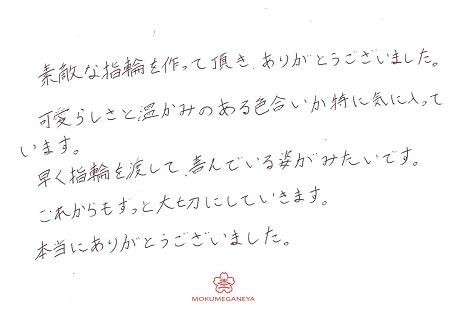 素敵な指輪を作って頂き、ありがとうございました。
可愛らしさと温かみのある色合いが特に気に入って
います。
早く指輪を渡して、喜んでいる姿がみたいです。
これからもずっと大切にしていきます。
本当にありがとうございました。
MOKUMEGANEYA